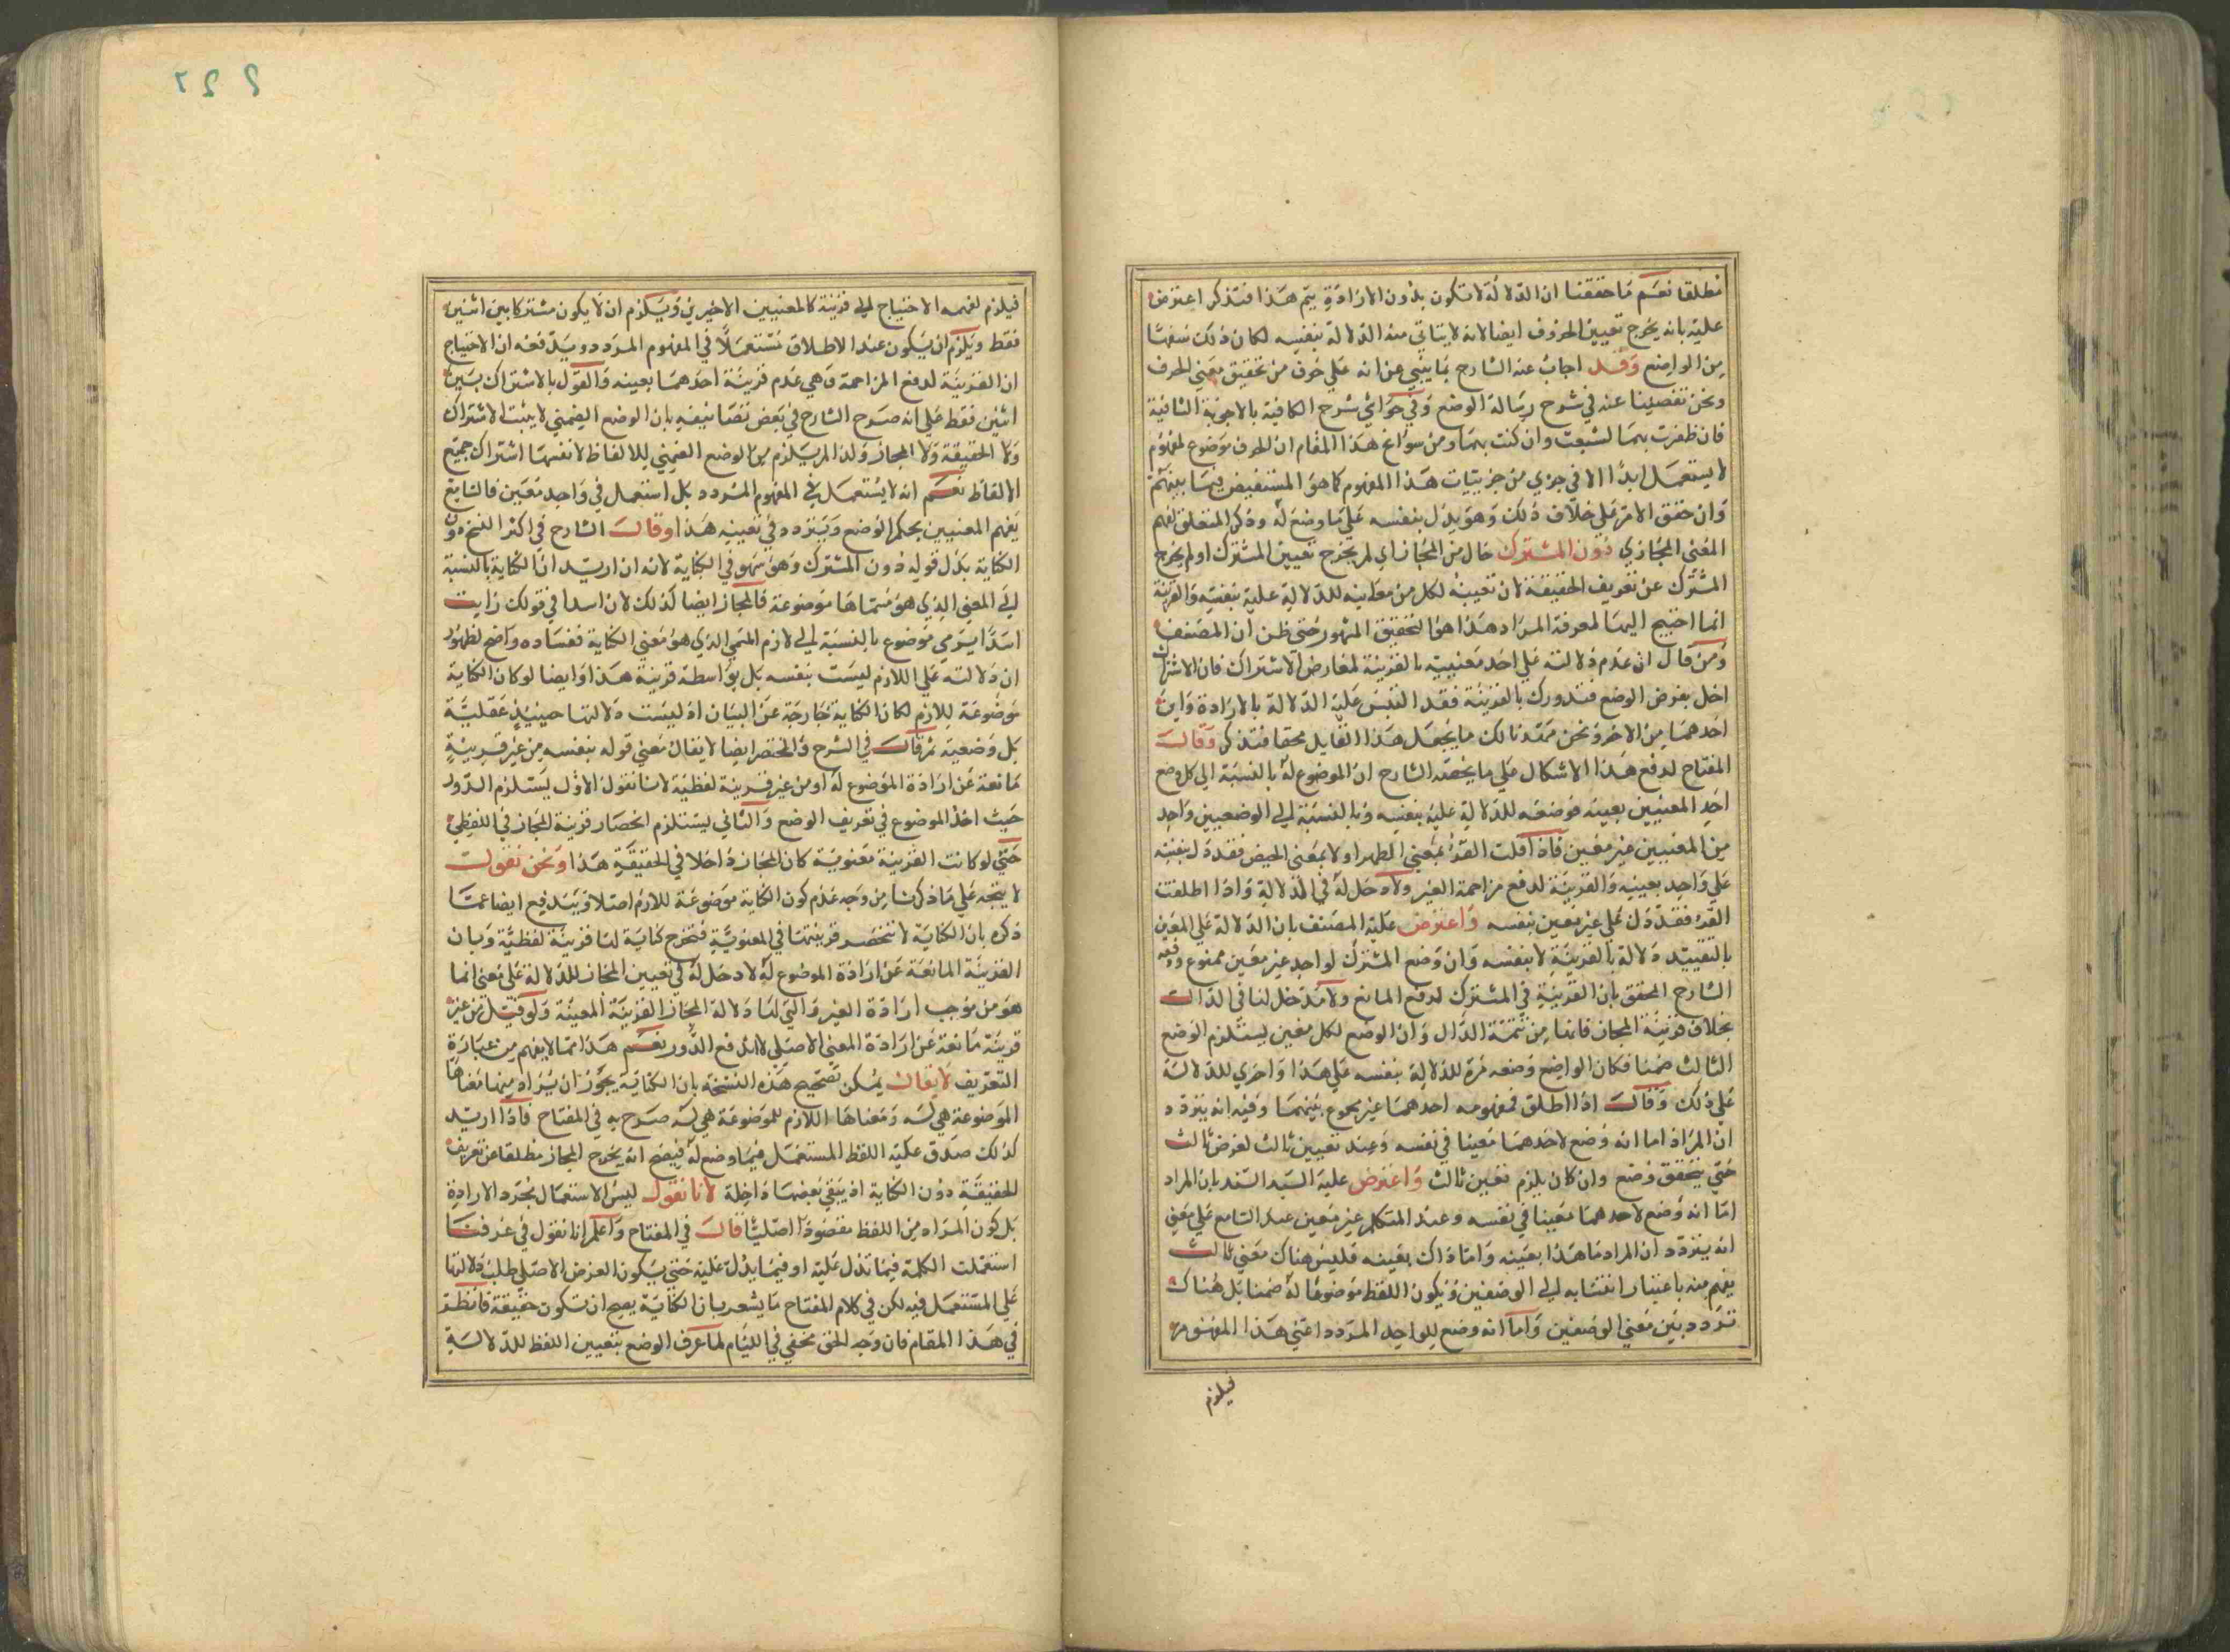 مطلقا نعم ما حققنا ان الدلالة لا تكون بدون الارادة يتم هذا فتذكر اعترض
عليه بانه يخرج تعيين الحروف ايضا لانه لا يتاتي منه الدلالة بنفسه لكان ذلك سفها
من الواضع وقد اجاب عنه الشارح بما ينبي عن انه علي خوف من تحقيق معني الحرف
ونحن تفصينا عنه في شرح رسالة الوضع وفي حواشي شرح الكافية بالاجوبة الشافية
فان ظفرت بهما لشبعت وان كنت بهما ومن سوانح هذا المقام ان الحرف موضوع لمفهوم
لا يستعمل ابدا الا في جزي من جزييات هذا المفهوم كما هو المستفيض فيما بينهم
وان حقق الامر علي خلاف ذلك وهو يدل بنفسه علي ما وضع له وذكر المتعلق لفهم
المعني المجازي دون المشترك حال من المجاز اي لم يخرج تعيين المشترك او لم يخرج
المشترك عن تعريف الحقيقة لان تعيينه لكل من معانيه للدلالة عليه بنفسه والقرينة
انما احتيج اليها لمعرفة المراد هذا هو التحقيق المشهور حتي ظن ان المصنف
ومن قال ان عدم دلالته علي احد معنييه بالقرينة لمعارض الاشتراك فان الاشتراك
اخل بغرض الوضع فتدورك بالقرينة فقد التبس عليه الدلالة بالارادة واين
احدهما من الاخر ونحن مهدنا لك ما يجعل هذا القايل محقا فتذكر وقال
المفتاح لدفع هذا الاشكال علي ما يخصه الشارح ان الموضوع له بالنسبة الي كل وضع
احد المعنيين بعينه فوضعه للدلالة عليه بنفسه وبالنسبة الي الوضعيين واحد
من المعنيين غير معين فاذا قلت القرء بمعني الطهر او لا بمعني الحيض فقد دل بنفسه
علي واحد بعينه والقرينة لدفع مزاحمة الغير ولا دخل له في الدلالة واذا اطلقت
القرء فقد دل علي غير معين بنفسه واعترض عليه المصنف بان الدلالة علي المعين
بالتقييد دلالة بالقرينة لا بنفسه وان وضع المشترك لواحد غير معين ممنوع ودفعه
الشارح المحقق بان القرينة في المشترك لدفع المانع ولا مدخل لها في الدال
بخلاف قرينة المجاز فانها من تتمة الدال وان الوضع لكل معين يستلزم الوضع
الثالث ضمنا فكان الواضع وضعه مرة للدلالة بنفسه علي هذا واخري للدلالة
علي ذلك وقال اذا اطلق فمفهومه احدهما غير مجموع بينهما وفيه انه يتردد
ان المراد اما انه وضع لاحدهما معينا في نفسه وعند تعيين ثالث لغرض ثالث
حتي يتحقق وضع وان كان يلزم تعين ثالث واعترض عليه السيد السند بان المراد
اما انه وضع لاحدهما معينا في نفسه وعند المتكلم غير معين عند السامع علي معني
انه يتردد ان المراد ما هذا بعينه واما ذاك بعينه فليس هناك معني ثالث
يفهم منه باعتبار انتسابه الي الوضعين ويكون اللفظ موضوعا له ضمنا بل هناك
تردد بين معني الوضعين واما انه وضع للواحد المردد اعني هذا المفهوم
فيلزم
٢٩٢
فيلزم لفهمه الاحتياج الي قرينة كالمعنيين الاخيرين ويلزم ان لا يكون مشتركا بين اثنين
فقط ويلزم ان يكون عند الاطلاق مستعملا في المفهوم المردد ويدفعه ان الاحتياج
ان القرينة لدفع المزاحمة وهي عدم قرينة احدهما بعينه والقول بالاشتراك بين
اثنين فقط علي انه صرح الشارح في بعض تصانيفه بان الوضع الضمني لا يثبت الاشتراك
ولا الحقيقة ولا المجاز ولذا لم يلزم من الوضع الضمني للالفاظ لانفسها اشتراك جميع
الالفاظ نعم انه لا يستعمل في المفهوم المردد بل استعمل في واحد معين فالسامع
يفهم المعنيين بحكم الوضع ويتردد في تعيينه هذا وقال الشارح في اكثر النسخ دون
الكناية بدل قوله دون المشترك وهو سهو في الكناية لانه ان اريد ان الكناية بالنسبة
الي المعني الذي هو مسماها موضوعة فالمجاز ايضا كذلك لان اسدا في قولك رايت
اسدا يرمي موضوع بالنسبة الي لازم المسمي الذي هو معني الكناية ففساده واضح لظهور
ان دلالته علي اللازم ليست بنفسه بل بواسطة قرينة هذا وايضا لو كان الكناية
موضوعة للازم لكان الكناية خارجة عن البيان اذ ليست دلالتها حينيذ عقلية
بل وضعية ثم قال في الشرح والمختصر ايضا لا يقال معني قوله بنفسه من غير قرينة
مانعة عن ارادة الموضوع له او من غير قرينة لفظية لانا نقول الاول يستلزم الدور
حيث اخذ الموضوع في تعريف الوضع والثاني يستلزم انحصار قرينة المجاز في اللفظي
حتي لو كانت القرينة معنوية كان المجاز داخلا في الحقيقة هذا ونحن نقول
لا يتجه علي ما ذكرنا من وجه عدم كون الكناية موضوعة للازم اصلا ويندفع ايضا عما
ذكره بان الكناية لا تنحصر قرينتها في المعنوية فتخرج كناية لها قرينة لفظية وبان
القرينة المانعة عن ارادة الموضوع له لا دخل له في تعيين المجاز للدلالة علي معني انما
هو من موجب ارادة الغير والتي لها دلالة المجاز القرينة المعينة ولو قيل من غير
قرينة مانعة عن ارادة المعني الاصلي لاندفع الدور نعم هذا مما لا يفهم من عبارة
التعريف لا يقال يمكن تصحيح هذه النسخة بان الكناية يجوز ان يراد منها معناها
الموضوعة هي له ومعناها اللازم للموضوعة هي له صرح به في المفتاح فاذا اريد
كذلك صدق عليه اللفظ المستعمل فيما وضع له فيصح انه يخرج المجاز مطلقا عن تعريف
الحقيقة دون الكناية اذ يبقي بعضها داخلة لانا نقول ليس الاستعمال بمجرد الارادة
بل كون المراد من اللفظ مقصودا اصليا قال في المفتاح واعلم انا نقول في عرفنا
استعملت الكلمة فيما تدل عليه او فيما يدل عليه حتي يكون الغرض الاصلي طلب دلالتها
علي المستعمل فيه لكن في كلام المفتاح ما يشعر بان الكناية يصح ان تكون حقيقة فانظر
في هذا المقام فان وجه الحق مخفي في اللثام لما عرف الوضع بتعيين اللفظ للدلالة